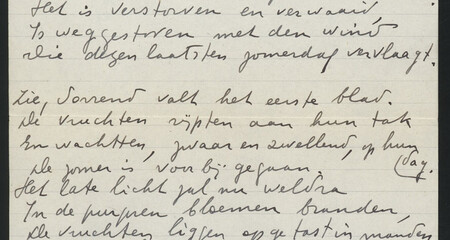 Het is verstorven en verwaaid,
Is weggestoven met den wind
Die dezen laatsten zomerdag vervlaagt.
Zie, dorrend valt het eerste blad.
De vruchten rijpten aan hun tak
En wachtten, zwaar en zwellend, op hun
dag.
De zomer is voorbij gegaan.
Het late licht zal nu weldra
In de purpren bloemen branden,
De vruchten liggen opgetast in manden